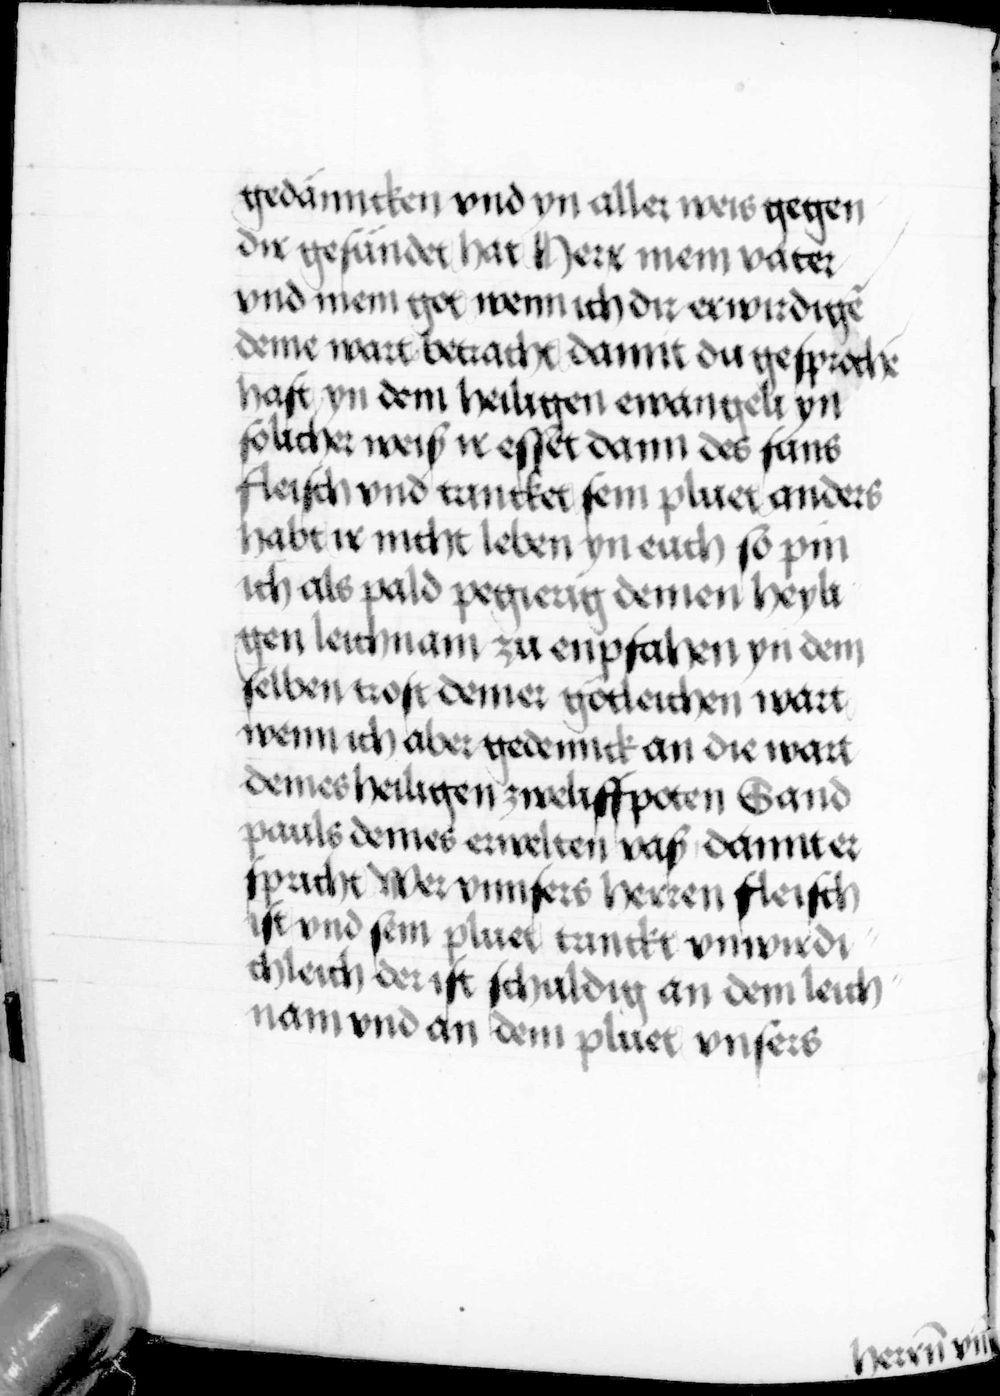 gedänncken vnd yn aller weis gegen
dir gesündet hat Herr mein vater
vnd mein got wenn ich dir erwirdigē
deine wart betracht damit du gesprochē
hast yn dem heiligen ewangeli yn
solicher weiß ir esset dann des suns
fleisch vnd trincket sein pluet anders
habt ir nicht leben yn euch so pin
ich als pald pegierig deinen heyli
gen leichnam zu enpfahen yn dem
selben trost deiner götleichen wart
wenn ich aber gedennck an die wart
deines heiligen zweliffpoten Sand
pauls deines erwelten vaß damit er
spricht Wer vnnsers herren fleisch
ist vnd sein pluet trinckt vnwirdi〃
chleich der ist schuldig an dem leich〃
nam vnd an dem pluet vnsers
herrn̄